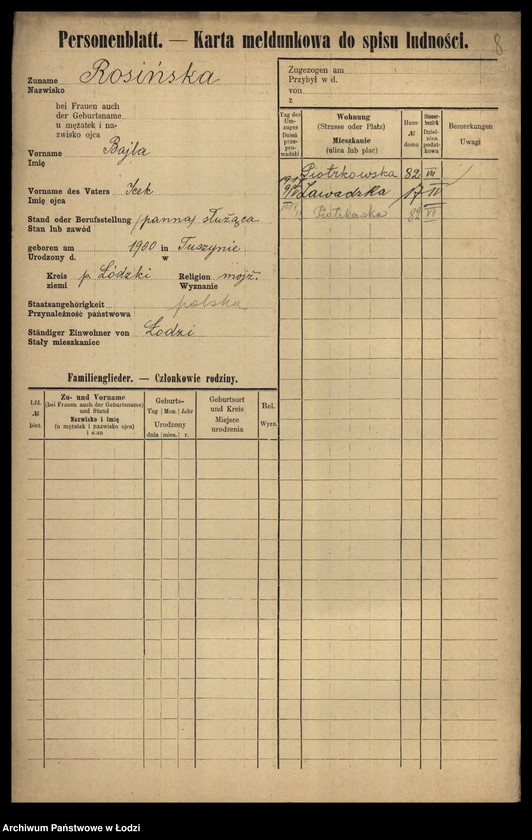 Personenblatt. — Karta meldunkowa do spisu ludności.
8
Zuname
Nazwisko
Rosińska
bei Frauen auch
der Geburtsname
u mężatek i na-
zwisko ojca
Vorname
Imię
Bajla
Vorname des Vaters
Imię ojca
Icek
Stand oder Berufsstellung
Stan lub zawód
(panna) służąca
geboren am 1900 in Tuszynie
Urodzony d. w
Kreis
ziemi
p. Łódzki
Religion
Wyznanie
mojż.
Staatsangehörigkeit
Przynależność państwowa
polska
Ständiger Einwohner von
Stały mieszkaniec
Łodzi
Familienglieder. — Członkowie rodziny.
Lfd.
№
bież.
Zu- und Vorname
(bei Frauen auch der Geburtsname)
und Stand
Nazwisko i imię
(u mężatek i nazwisko ojca)
i stan
Geburts-
Tag Mon. Jahr
Urodzony
dnia mies. r.
Geburtsort
und Kreis
Miejsce
urodzenia
Rel.
Wyzn.
Zugezogen am
Przybył w d.
von
z
Tag des
Um-
zuges
Dzień
prze-
prowadzki
Wohnung
(Strasse oder Platz)
Mieszkanie
(ulica lub plac)
Haus-
№
domu
Steuer-
bezirk
Dziel-
nica
podat-
kowa
Bemerkungen
Uwagi
Piotrkowska 82 VII
Zawadzka 17 II
Piotrkowska 82 VII
Archiwum Państwowe w Łodzi